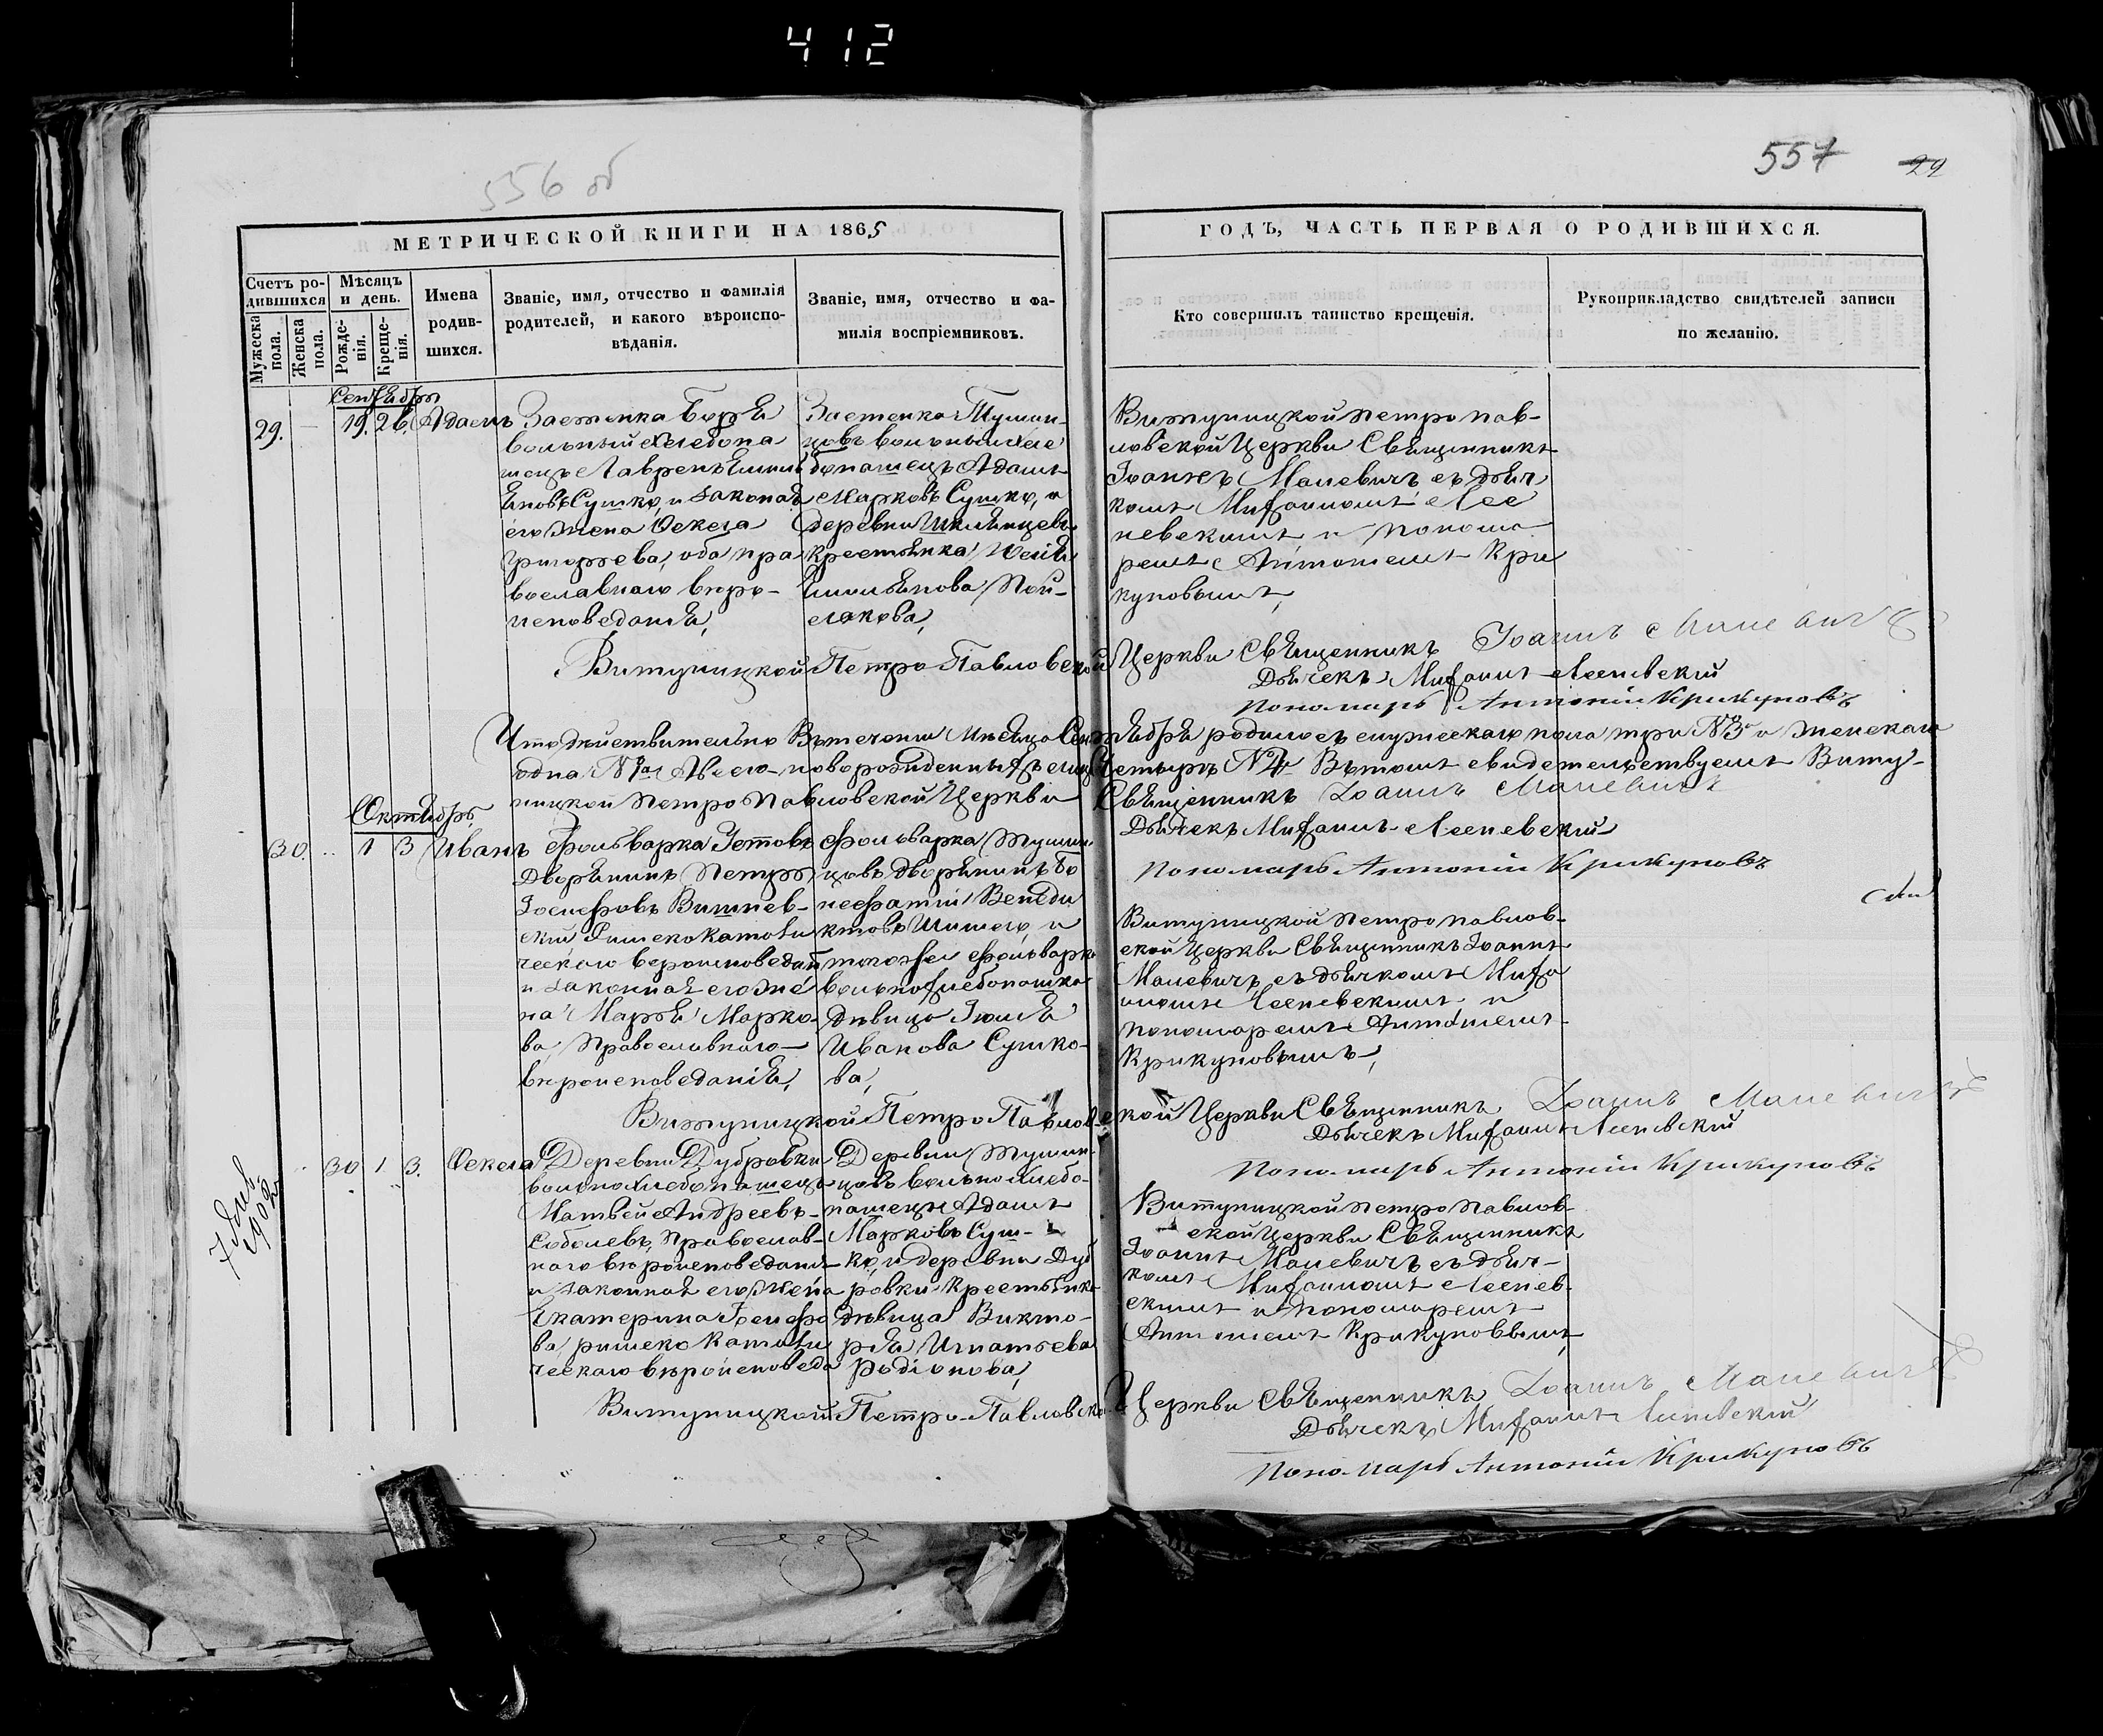 412
556 об
557
29
МЕТРИЧЕСКОЙ КНИГИ НА 1865
ГОДЪ, ЧАСТЬ ПЕРВАЯ О РОДИВШИХСЯ.
Счетъ ро-
дившихся
Мужеска
пола.
Женска
пола.
Мѣсяцъ
и день.
Рожде-
нія.
Креще-
нія.
Имена
родив-
шихся.
Званіе, имя, отчество и фамилія
родителей, и какого вѣроиспо-
вѣданія.
Званіе, имя, отчество и фа-
милія воспріемниковъ.
Кто совершилъ таинство крещенія.
Рукоприкладство свидѣтелей записи
по желанію.
Сентябрь
29.
19. 26.
Адамъ
Застенка
вольный хлебопа
шецъ Лаврен
Сушко, и законая
его жена Фекела
Григорьева, оба пра
вославнаго веро-
исповеданія,
Застенка Тумин-
цовъ вольный хле
бопашецъ Адамъ
Марковъ Сушко, и
деревни
крестьянка
ва,
Витуницкой Петропав-
ловской Церкви Священникъ
Іоаннъ Малевичъ съ дьяч
комъ
невскимъ и понома
ремъ Антоніемъ Кри
куновымъ,
Витуницкой Петро-Павловской Церкви Священникъ Іоаннъ Малевичъ
Дьячекъ
Пономарь Антоній Крикуновъ
Что действительно втеченіи месяца Сентября родилось мужескаго пола три №3 и женскаго
одна №1 Авсего новорожденныхъ Четыре №4 Втомъ свидетельствуемъ Виту-
ницкой Петропавловской Церкви Священникъ Іоаннъ Малевичъ
Дьячекъ
Пономарь Антоній Крикуновъ
Октябрь
30.
1 3
Иванъ
фольварка
Дворянинъ Петръ
Іосифовъ Вишнев-
скій Римскокатоли
ческаго вероисповедан
и законная его же
на Марья Марко-
ва, Православнаго
вероисповеданія,
фольварка Тумин
цовъ дворянинъ Бо
нефатій Венеди
ктовъ и
тогоже фольварка
вольнохлебопашка
девица Юлія
Иванова Сушко-
ва,
Витуницкой Петропавлов-
ской Церкви Священникъ Іоаннъ
Малевичъ, съ дьячкомъ
и
пономаремъ Антоніемъ
Крикуновымъ,
Витуницкой Петро-Павловской Церкви Священникъ Іоаннъ Малевичъ
Дьячекъ
Пономарь Антоній Крикуновъ
30 1 3.
Фекела
Деревни Дубровки
вольнохлебопашецъ
Матвей Андреевъ
Соболевъ, Православ-
наго вероисповеданія
и законная его жена
Екатерина Іосифо
ва, римско католи
ческаго вероисповеда
Деревни Тумин
цовъ вольнохлебо-
пашецъ Адамъ
Марковъ Суш-
ко, и деревни Дуб
ровки крестьянка
девица Викто-
рія Игнатьева
Родіонова,
Витуницкой Петропавлов-
ской Церкви Священникъ
Іоаннъ Малевичъ съ дьяч-
комъ
скимъ и пономаремъ
Антоніемъ Крикуновымъ,
Витуницкой Петро-Павловской Церкви Священникъ Іоаннъ Малевичъ
Дьячекъ
Пономарь Антоній Крикуновъ